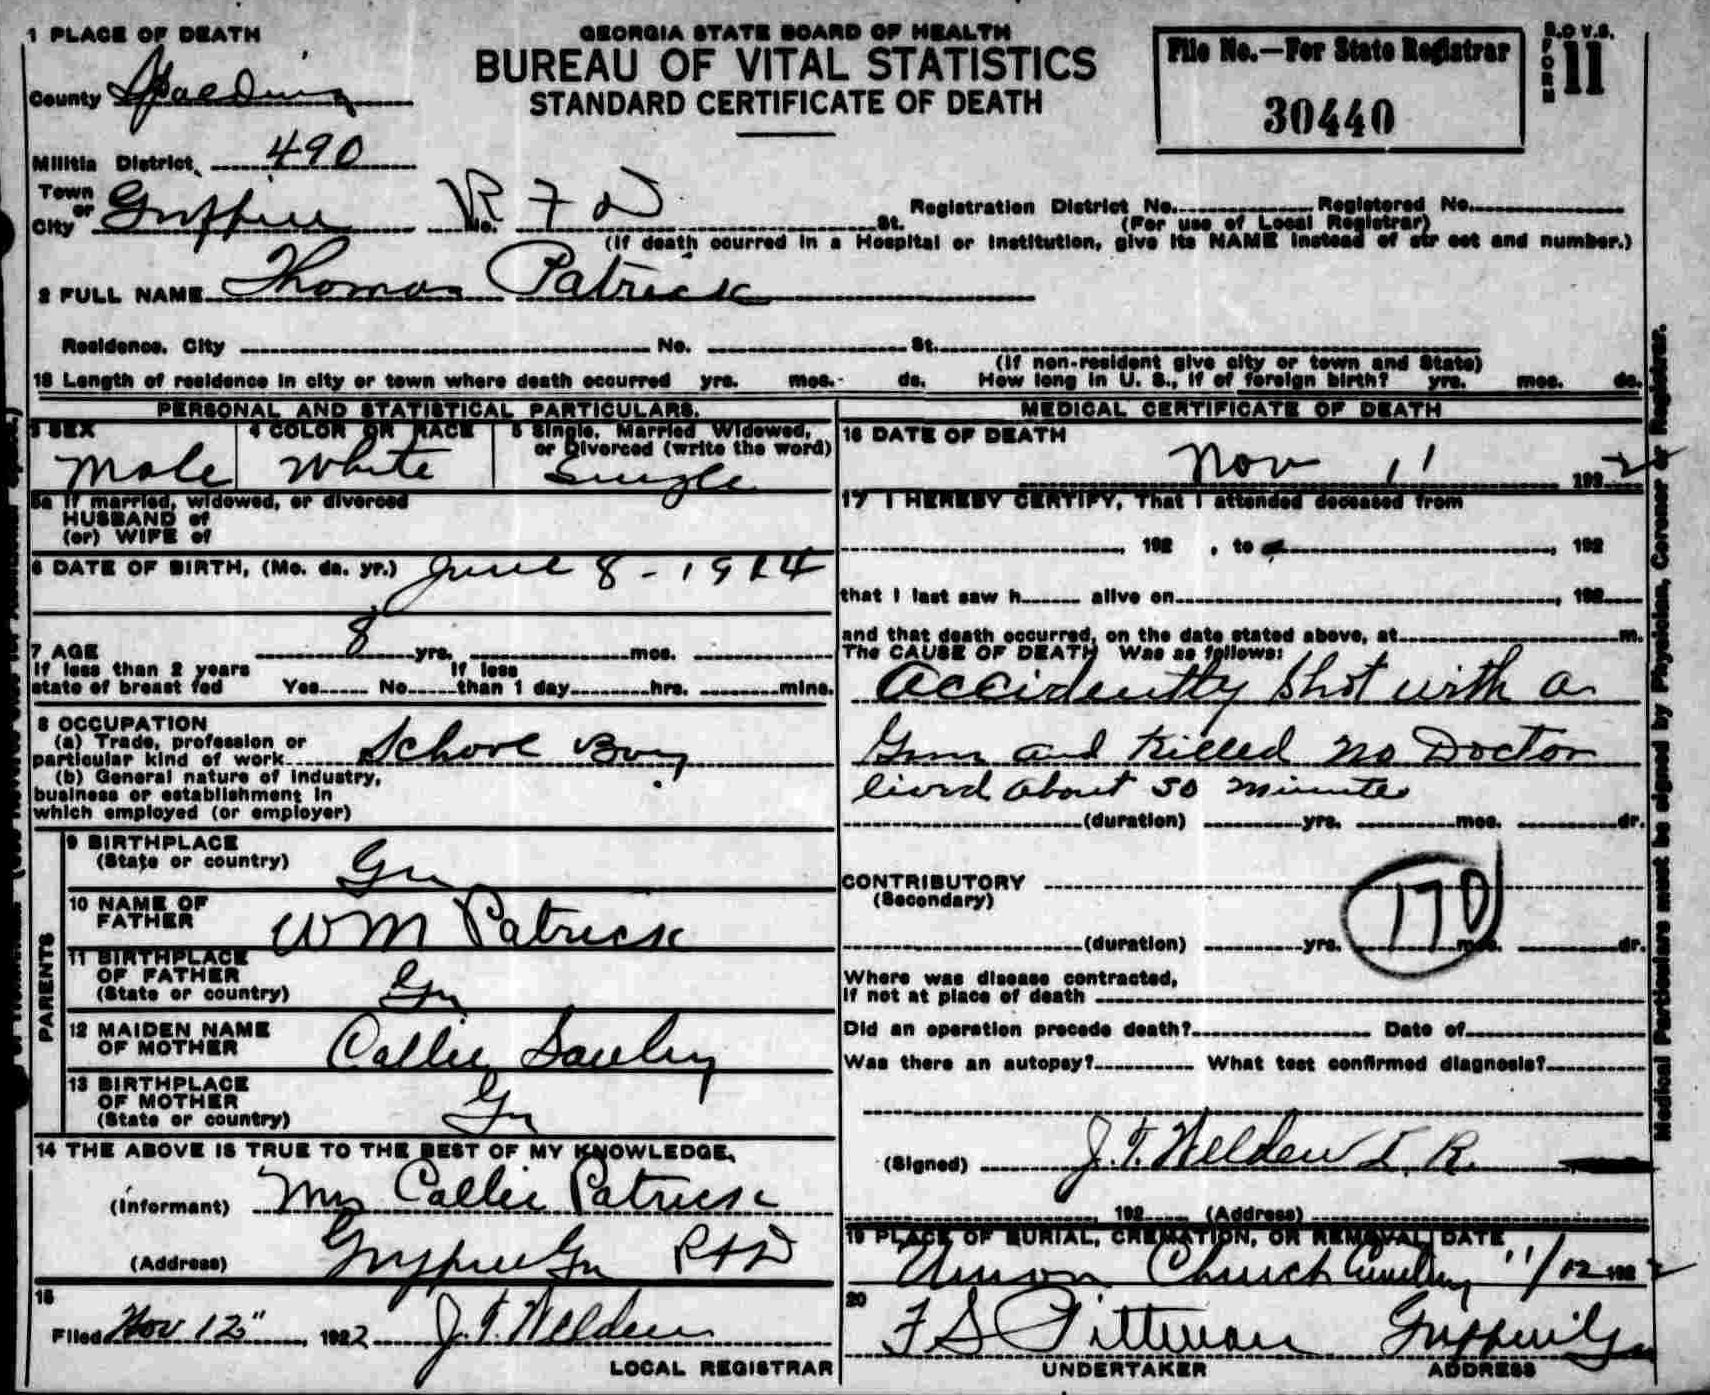 1 PLACE OF DEATH
GEORGIA STATE BOARD OF HEALTH
BUREAU OF VITAL STATISTICS
STANDARD CERTIFICATE OF DEATH
File No.—For State Registrar
30440
R.O V.S.
FORM 11
County Spalding
Militia District, 490
Town or City Griffin No. R F D St.
Registration District No. Registered No.
(For use of Local Registrar)
(If death ocurred in a Hospital or Institution, give its NAME instead of str eet and number.)
2 FULL NAME Thomas Patrick
Residence. City No. St.
(If non-resident give city or town and State)
18 Length of residence in city or town where death occurred yrs. mos. ds. How long in U. S., if of foreign birth? yrs. mos. ds.
PERSONAL AND STATISTICAL PARTICULARS.
3 SEX
Male
4 COLOR OR RACE
White
5 Single, Married Widowed,
or Divorced (write the word)
Single
5a If married, widowed, or divorced
HUSBAND of
(or) WIFE of
6 DATE OF BIRTH, (Mo. da. yr.) June 8 - 1914
7 AGE 8 yrs. mos.
If less than 2 years
state of breast fed Yes No
If less
than 1 day hrs. mins.
8 OCCUPATION
(a) Trade, profession or
particular kind of work School Boy
(b) General nature of Industry,
business or establishment in
which employed (or employer)
PARENTS
9 BIRTHPLACE
(State or country) Ga
10 NAME OF
FATHER WM Patrick
11 BIRTHPLACE
OF FATHER
(State or country) Ga
12 MAIDEN NAME
OF MOTHER Callie
13 BIRTHPLACE
OF MOTHER
(State or country) Ga
14 THE ABOVE IS TRUE TO THE BEST OF MY KNOWLEDGE.
(Informant) Mrs Callie Patrick
(Address) Griffin Ga R F D
15
Filed Nov 12", 1922 J.T. Welden
LOCAL REGISTRAR
MEDICAL CERTIFICATE OF DEATH
16 DATE OF DEATH
Nov 11 1922
17 I HEREBY CERTIFY, That I attended deceased from
, 192 , to , 192
that I last saw h alive on , 192
and that death occurred, on the date stated above, at m.
The CAUSE OF DEATH Was as follows:
Accidently shot with a
Gun and Killed no Doctor
lived about 30 minutes
(duration) yrs. mos. dr.
CONTRIBUTORY
(Secondary)
170
(duration) yrs. mos. dr.
Where was disease contracted,
if not at place of death
Did an operation precede death? Date of
Was there an autopsy? What test confirmed diagnosis?
(Signed) J.T. Welden L. R.
192 (Address)
19 PLACE OF BURIAL, CREMATION, OR REMOVAL DATE
Union Church Cemetery 11/12 1922
20 F S Pittman Griffin Ga
UNDERTAKER ADDRESS
Medical Particulars must be signed by Physician, Coroner or Registrar.